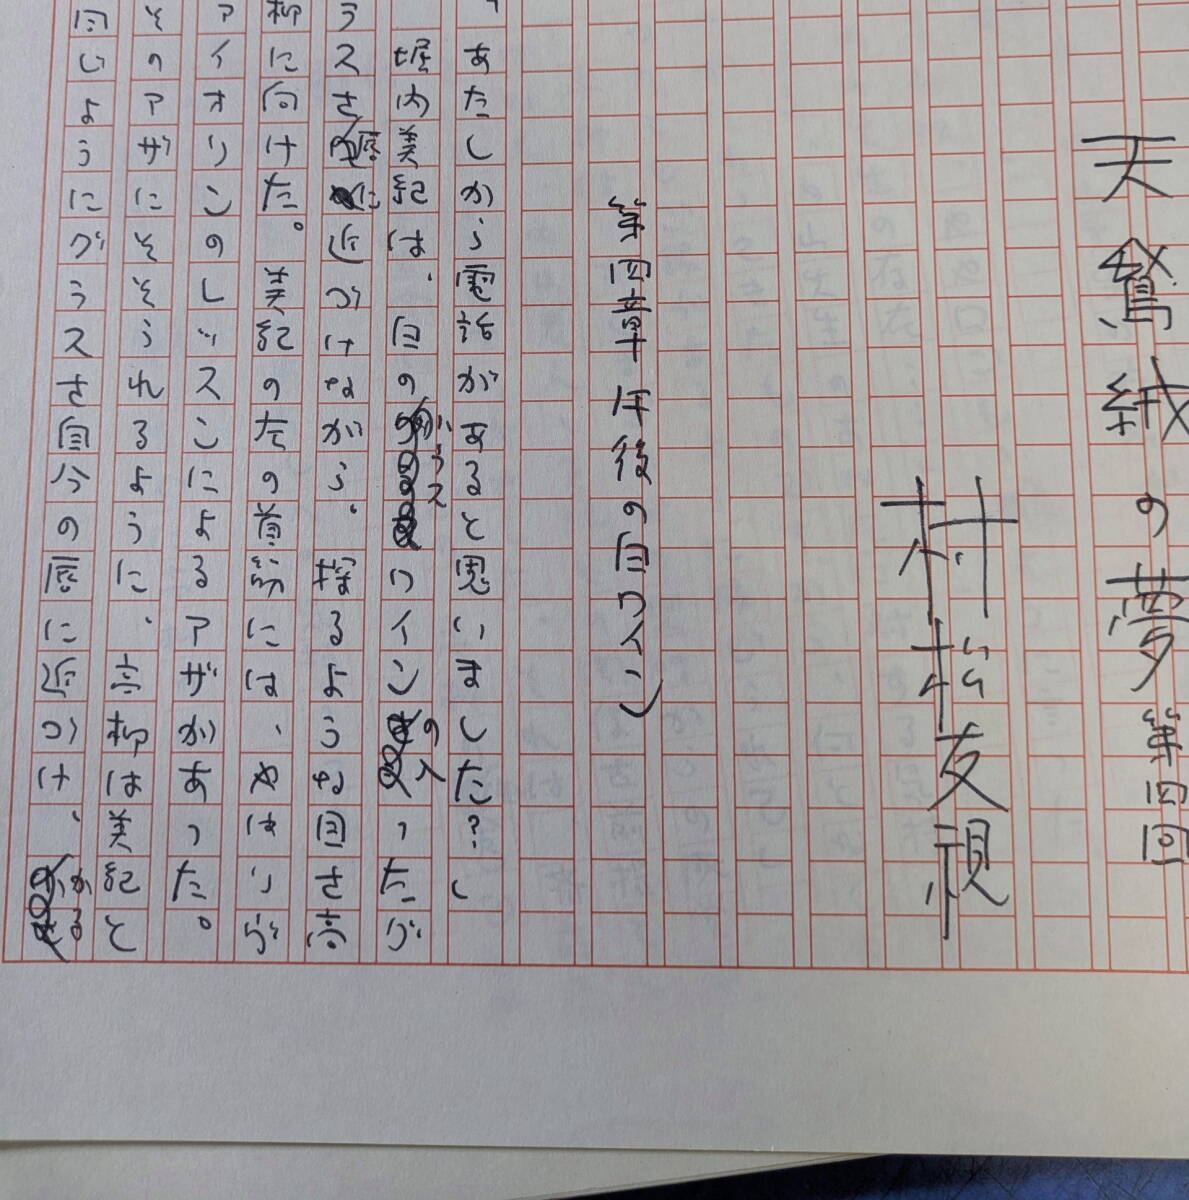 天鵞絨の夢 第四回
村松友視
第四章 午後の白ワイン
あたしから電話があると思いました?」
堀内美紀は、白のグラスワインの入ったグ
ラスを唇に近づけながら、探るような目を高
柳に向けた。美紀の左の首筋には、やはりヴ
ァイオリンこのしッスこによるアザがあった。
そのアザにそそられるように、高柳は美紀と
同じようにグラスを自分の唇に近づけ、かる